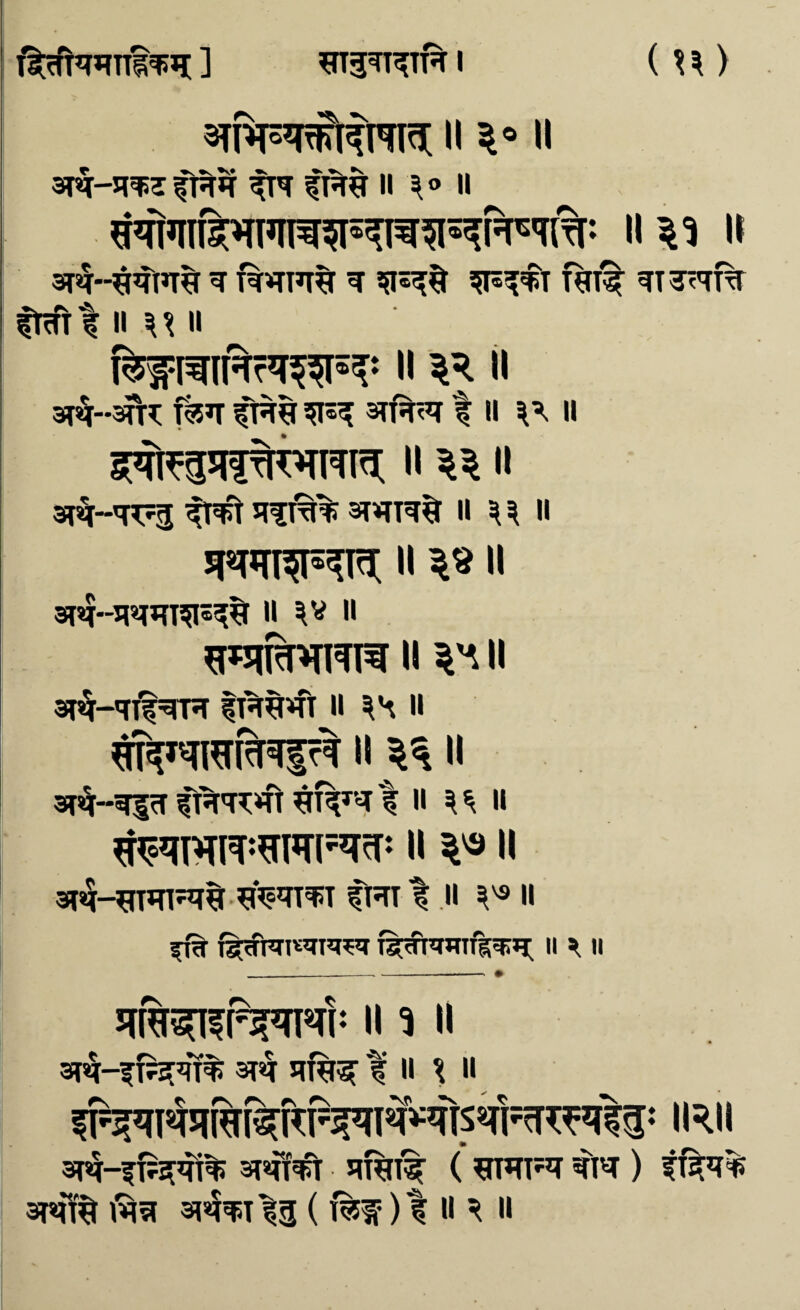 द्वितीयमाह्निकम् ] भाषानुवाद । ( २३ )
अभिव्यक्तौदोषात् ॥ ३० ॥
अर्थ-प्रकट होनेमें दोष होनेसे ॥ ३० ॥
संयोगाद्विभागाच्चशब्दाच्चशब्दनिष्पत्तिः ॥ ३१ ॥
अर्थ--संयोगसे व विभागसे व शब्दसे शब्दकी सिद्धि वा उत्पत्ति
होती है ॥ ३१ ॥
लिङ्गाच्चानित्यश्शब्दः ॥ ३२ ॥
अर्थ--और लिङ्ग होनेसे शब्द अनित्य है ॥ ३२ ॥
द्वयोस्तुप्रवृत्त्योरभावात् ॥ ३३ ॥
अर्थ--परन्तु दोकी प्रवृत्तिके अभावसे ॥ ३३ ॥
प्रथमाशब्दात् ॥ ३४ ॥
अर्थ--प्रथमाशब्दसे ॥ ३४ ॥
सम्प्रतिभावाच्च ॥ ३५ ॥
अर्थ-पहिचान होनेसेभी ॥ ३५ ॥
सन्दिग्धास्सतिबहुत्वे ॥ ३६ ॥
अर्थ-बहुत होनेपरभी सन्दिग्ध है ॥ ३६ ॥
संख्याभावःसामान्यतः ॥ ३७ ॥
अर्थ-सामान्यसे संख्याका होना है ॥ ३७ ॥
इति द्वितीयाध्यायस्य द्वितीयमाह्निकम् ॥ २ ॥
प्रसिद्धाइन्द्रियार्थाः ॥ १ ॥
अर्थ-इन्द्रियोंके अर्थ प्रसिद्ध हैं ॥ १ ॥
इन्द्रियार्थप्रसिद्धिरिन्द्रियार्थेभ्योऽर्थान्तरस्यहेतुः ॥२॥
अर्थ-इन्द्रियोंके अर्थोंकी प्रसिद्धि ( सामान्य बोध ) इन्द्रियोंके
अर्थोंसे भिन्न अर्थका हेतु ( लिङ्ग ) है ॥ २ ॥